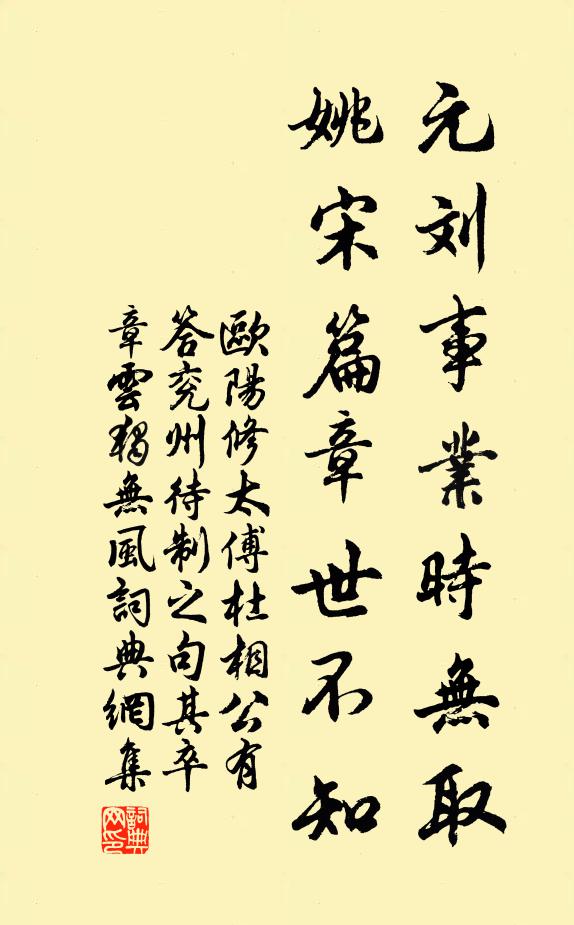 元刘事業時無取
姚宋篇章世不知
歐陽修太傅杜相公有
答兖州待制之句其卒
章雲獨無風詞典網集
詞典網印